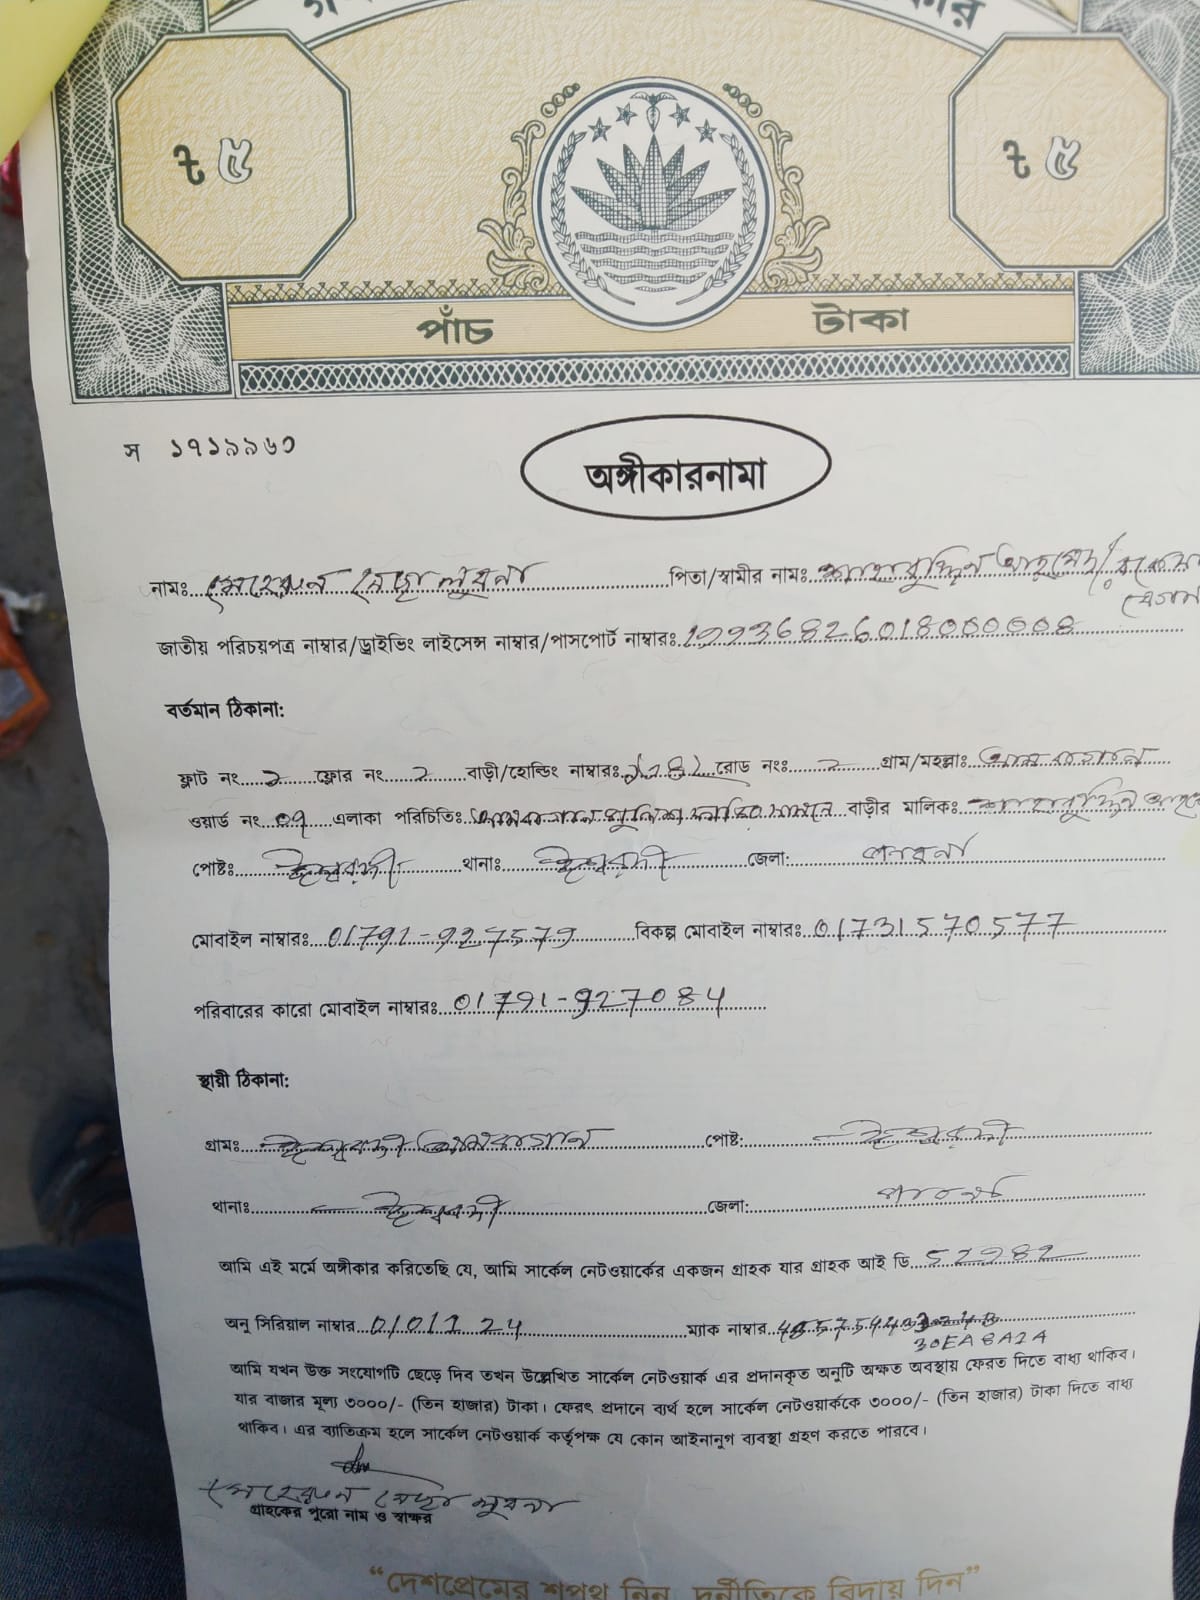 ৳ ৫
৳ ৫
পাঁচ টাকা
স ১৭১৯৯৬৩
অঙ্গীকারনামা
নামঃ মেহেরুন নেছা লুবনা পিতা/স্বামীর নামঃ
জাতীয় পরিচয়পত্র নাম্বার/ড্রাইভিং লাইসেন্স নাম্বার/পাসপোর্ট নাম্বারঃ 19936826018000008
বর্তমান ঠিকানা:
ফ্লাট নং ২ ফ্লোর নং ২ বাড়ী/হোল্ডিং নাম্বারঃ রোড নংঃ ২ গ্রাম/মহল্লাঃ
ওয়ার্ড নং ০৭ এলাকা পরিচিতিঃ আমবাগান পুলিশ ফাঁড়ির সামনে বাড়ীর মালিকঃ
পোষ্টঃ ঈশ্বরদী থানাঃ ঈশ্বরদী জেলা: পাবনা
মোবাইল নাম্বারঃ 01791-927579 বিকল্প মোবাইল নাম্বারঃ 01731570577
পরিবারের কারো মোবাইল নাম্বারঃ 01791-927084
স্থায়ী ঠিকানা:
গ্রামঃ ঈশ্বরদী আমবাগান পোষ্ট: ঈশ্বরদী
থানাঃ ঈশ্বরদী জেলা: পাবনা
আমি এই মর্মে অঙ্গীকার করিতেছি যে, আমি সার্কেল নেটওয়ার্কের একজন গ্রাহক যার গ্রাহক আই ডি 52982
অনু সিরিয়াল নাম্বার 0101124 ম্যাক নাম্বার
30EABA2A
আমি যখন উক্ত সংযোগটি ছেড়ে দিব তখন উল্লেখিত সার্কেল নেটওয়ার্ক এর প্রদানকৃত অনুটি অক্ষত অবস্থায় ফেরত দিতে বাধ্য থাকিব।
যার বাজার মূল্য ৩০০০/- (তিন হাজার) টাকা। ফেরৎ প্রদানে ব্যর্থ হলে সার্কেল নেটওয়ার্ককে ৩০০০/- (তিন হাজার) টাকা দিতে বাধ্য
থাকিব। এর ব্যাতিক্রম হলে সার্কেল নেটওয়ার্ক কর্তৃপক্ষ যে কোন আইনানুগ ব্যবস্থা গ্রহণ করতে পারবে।
মেহেরুন নেছা লুবনা
গ্রাহকের পুরো নাম ও স্বাক্ষর
“দেশপ্রেমের শপথ নিন, দুর্নীতিকে বিদায় দিন”